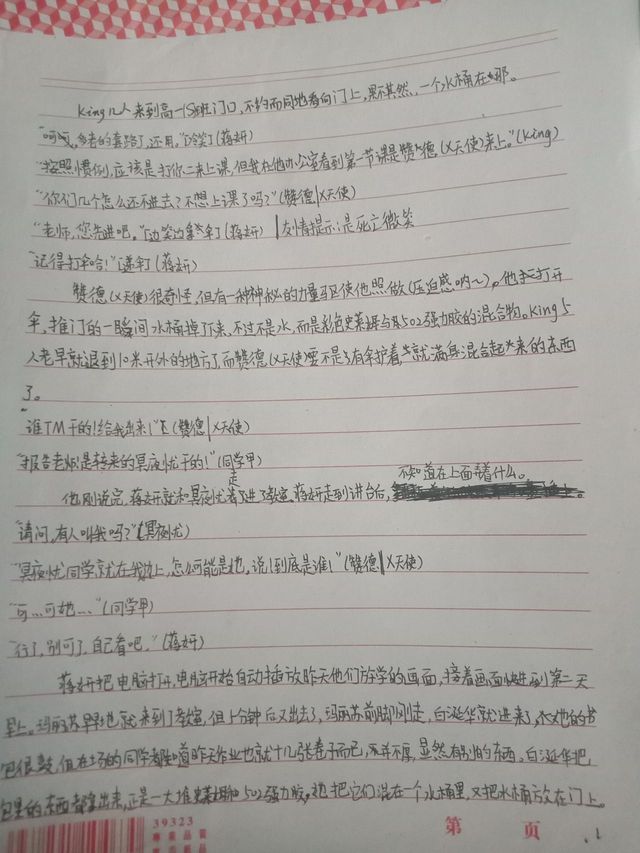 King几人来到高一(S)班门口,不约而同地看向门上,果不其然,一个水桶在那。
"呵呵,多老的套路了,还用。"冷笑了(蒋妍)
"按照惯例,应该是打你二来上课,但我在他办公室看到第一节课是赞德(X天使)来上。"(King)
"你们几个怎么还不进去?不想上课了吗?"(赞德|X天使)
"老师,您先进吧。"边笑边拿伞打(蒋妍) |友情提示:是死亡微笑
"记得打伞哈!"递打(蒋妍)
赞德(X天使)很奇怪,但有一种神秘的力量驱使他照做(压迫感呐~)。他打开
伞,推门的一瞬间水桶掉了下来,不过不是水,而是彩色史莱姆与502强力胶的混合物。King 5
人老早就退到10米开外的地方了,而赞德(X天使)要不是有伞护着,就满身混合起来的东西
了。
"谁TM干的!给我出来!"(赞德|X天使)
"报告老师!是转来的冥夜忧干的!"(同学甲)
他刚说完,蒋妍就和冥夜忧走进了教室,蒋妍走到讲台后,不知道在上面弄着什么。
"请问,有人叫我吗?"(冥夜忧)
"冥夜忧同学就在我边上,怎么可能是她,说!到底是谁!"(赞德|X天使)
"可…可她…"(同学甲)
"行了,别可了,自己看吧。"(蒋妍)
蒋妍把电脑打开,电脑开始自动播放昨天他们放学的画面,接着画面快进到第二天
早上。玛丽苏早早地就来到了教室,但十分钟后又出去了,玛丽苏前脚刚走,白涎华就进来了,她的书
包很鼓,但在场的同学都知道昨天作业也就十几张卷子而已,并不厚,显然有别的东西。白涎华把
包里的东西都拿出来,正是一大堆史莱姆和502强力胶,她把它们混在一个水桶里,又把水桶放在门上。
39323
第 页
1